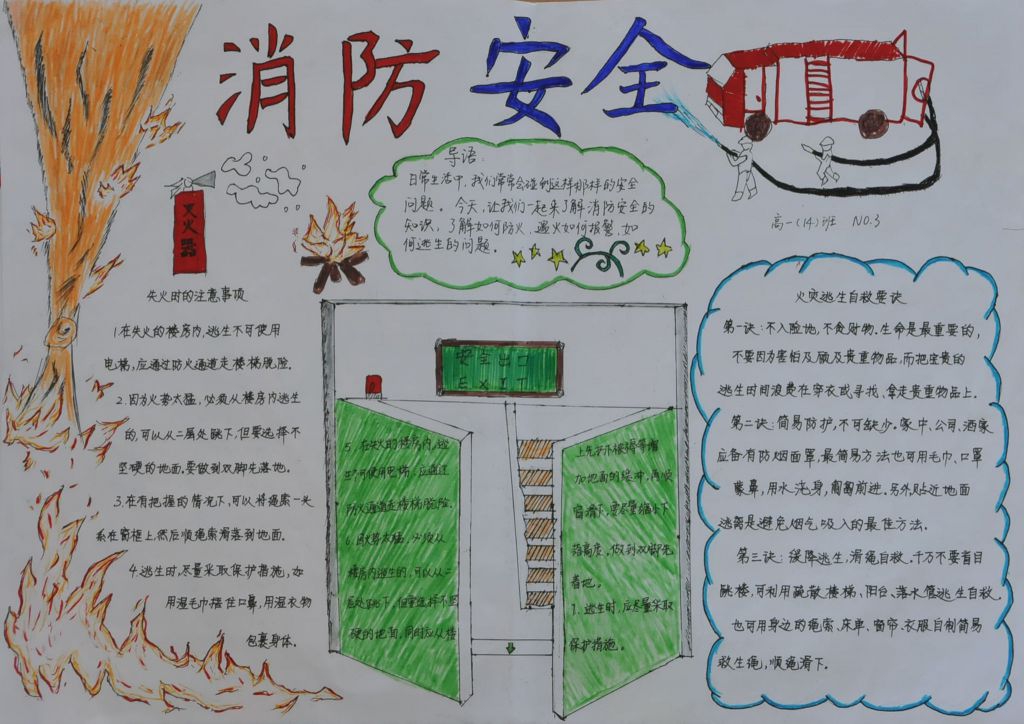 消防安全
导语：
日常生活中，我们常常会碰到这样那样的安全
问题。今天，让我们一起来了解消防安全的
知识，了解如何防火，遇火如何报警，如
何逃生的问题。
高一（14）班 NO.3
灭火器
失火时的注意事项
1.在失火的楼房内，逃生不可使用
电梯，应通过防火通道走楼梯脱险。
2.因为火势太猛，必须从楼房内逃生
的，可以从二层处跳下，但要选择不
坚硬的地面，要做到双脚先落地。
3.在有把握的情况下，可以将绳索一头
系在窗框上，然后顺绳索滑落到地面。
4.逃生时，尽量采取保护措施，如
用湿毛巾捂住口鼻，用湿衣物
包裹身体。
安全出口
EXIT
5.在失火的楼房内，逃
生不可使用电梯，应通过
防火通道走楼梯脱险。
6.因火势太猛，必须从
楼房内逃生的，可以从二
层处跳下，但要选择不坚
硬的地面，同时应从楼
上先扔下被褥等增
加地面的缓冲，再顺
窗滑下，要尽量缩小下
落高度，做到双脚先
着地。
7.逃生时，应尽量采取
保护措施。
火灾逃生自救要诀
第一诀：不入险地，不贪财物。生命是最重要的，
不要因为害怕及顾及贵重物品，而把宝贵的
逃生时间浪费在穿衣或寻找、拿走贵重物品上。
第二诀：简易防护，不可缺少。家中、公司、酒家
应备有防烟面罩，最简易方法也可用毛巾、口罩
蒙鼻，用水浇身，匍匐前进。另外贴近地面
逃离是避免烟气吸入的最佳方法。
第三诀：缓降逃生，滑绳自救。千万不要盲目
跳楼，可利用疏散楼梯、阳台、落水管逃生自救。
也可用身边的绳索、床单、窗帘、衣服自制简易
救生绳，顺绳滑下。